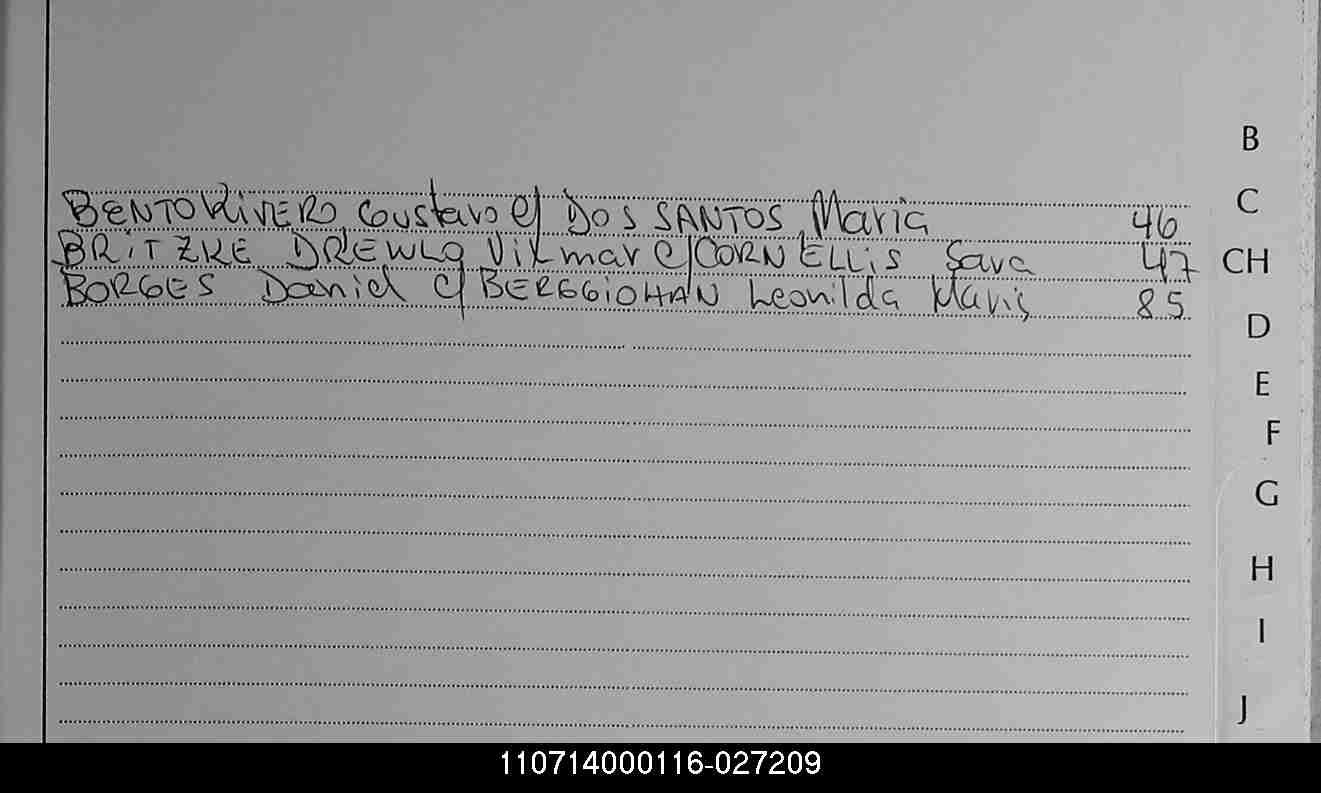 BENTO RiVERO Gustavo c/ DOS SANTOS Maria 46
BRiTZKE DREWLO Vilmar c/ CORNELLiS Sara 47
BORGES Daniel c/ BERGGIOHAN Leonilda Maris 85
B
C
CH
D
E
F
G
H
I
J
110714000116-027209